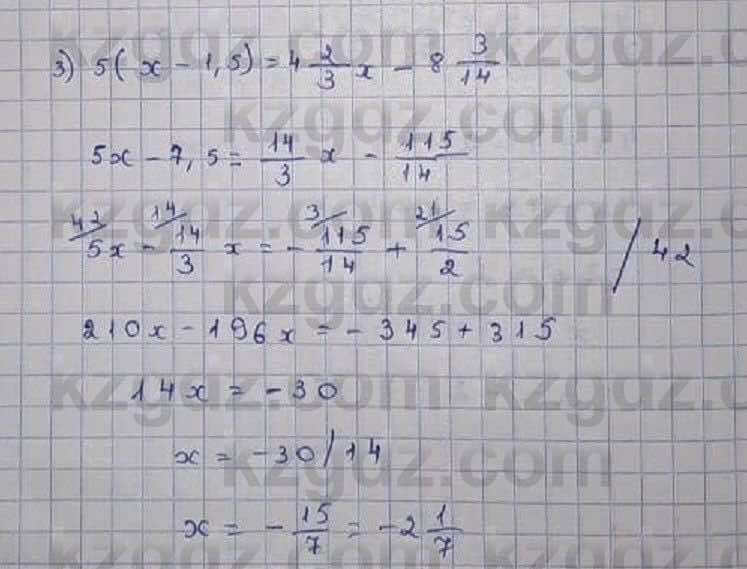 3) 5( x - 1,5) = 4 2/3 x - 8 3/14
5x - 7,5 = 14/3 x - 115/14
42/ 5x - 14/ 14/3 x = - 3/ 115/14 + 21/ 15/2 / 42
210x - 196x = - 345 + 315
14x = - 30
x = - 30/14
x = - 15/7 = - 2 1/7
kzgdz.com